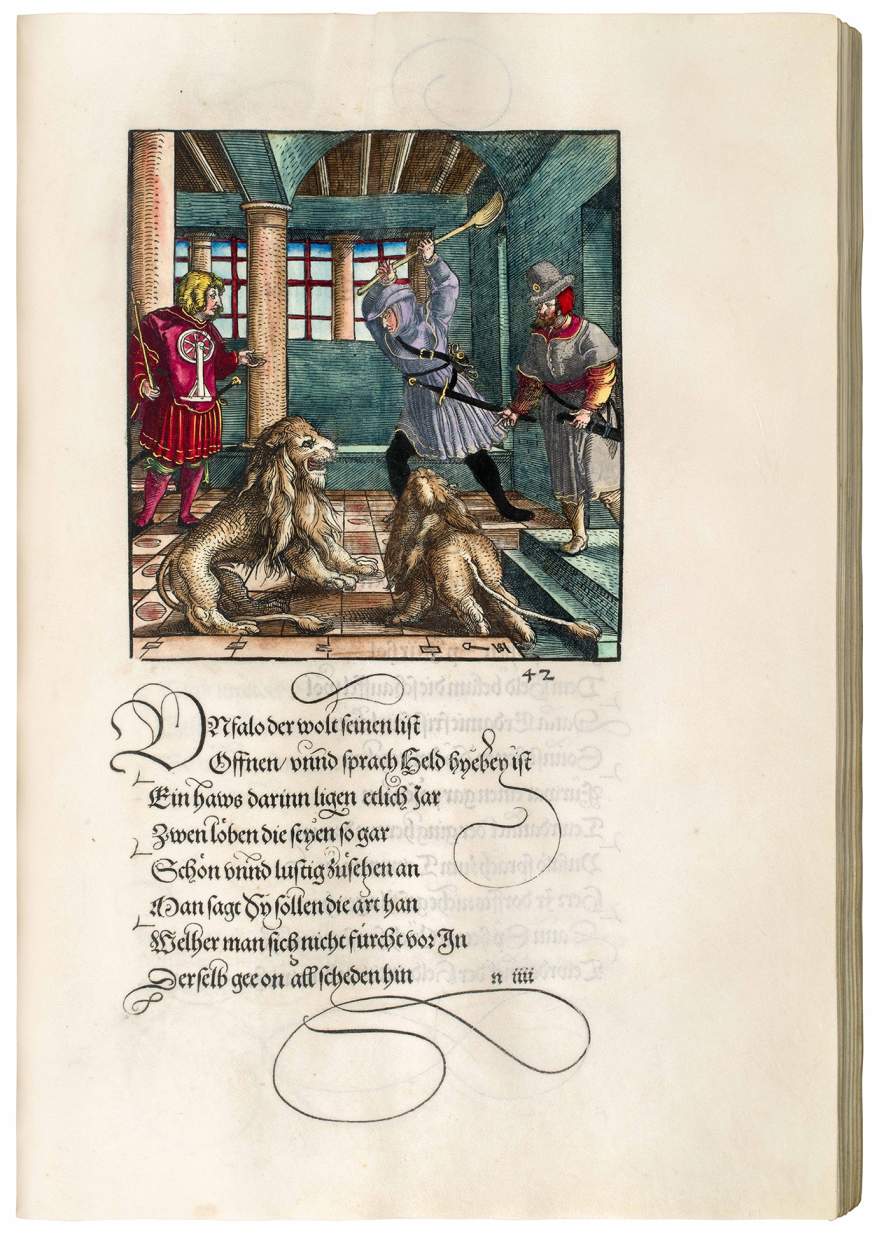 42
Vnfalo der wolt seinen list
Offnen/ vnnd sprach Held hyebey ist
Ein haws darinn ligen etlich Jar
Zwen löben die seyen so gar
Schön vnnd lustig zůsehen an
Man sagt Sy sollen die art han
Welher man sich nicht fürcht vor In
Derselb gee on all scheden hin
n iiii